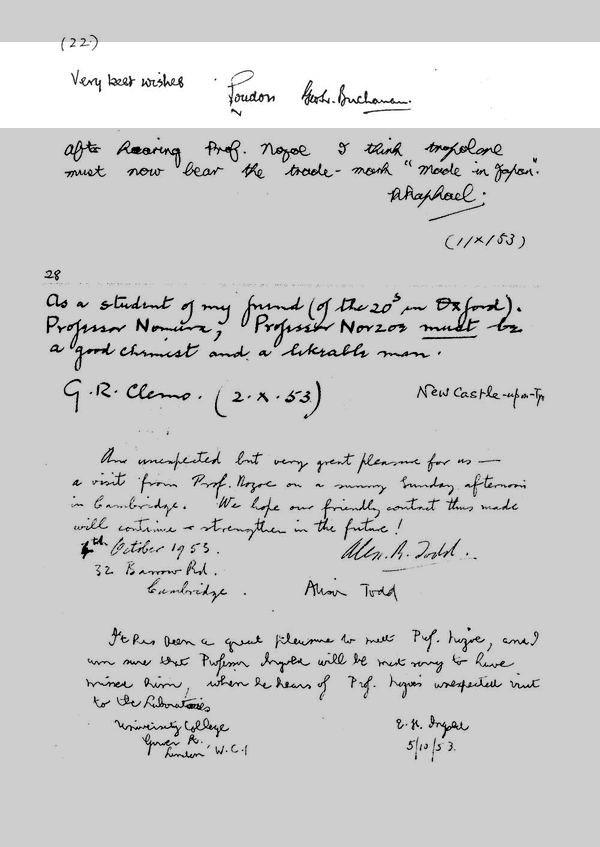 (22)
Very best wishes Loudon Geo. L. Buchanan.
After Hearing Prof. Nozoe I think tropolone
must now bear the trade-mark "Made in Japan".
R Raphael.
(1/X/53)
28
As a student of my friend (of the 20s in Oxford).
Professor Nomura, Professor Norzoe must be
a good chemist and a likeable man.
G. R. Clemo. (2.X.53) New Castle-upon-Ty
An unexpected but very great pleasure for us —
a visit from Prof. Nozoe on a sunny Sunday afternoon
in Cambridge. We hope our friendly contact thus made
will continue & strengthen in the future!
4th October 1953. Alex. R. Todd.
32 Barrow Rd.
Cambridge. Alison Todd
It has been a great pleasure to meet Prof. Nozoe, and I
am sure that Professor Ingold will be most sorry to have
missed him, when he hears of Prof. Nozoe's unexpected visit
to the Laboratories
University College E. H. Ingold
Gower St. 5/10/53.
London W.C.1